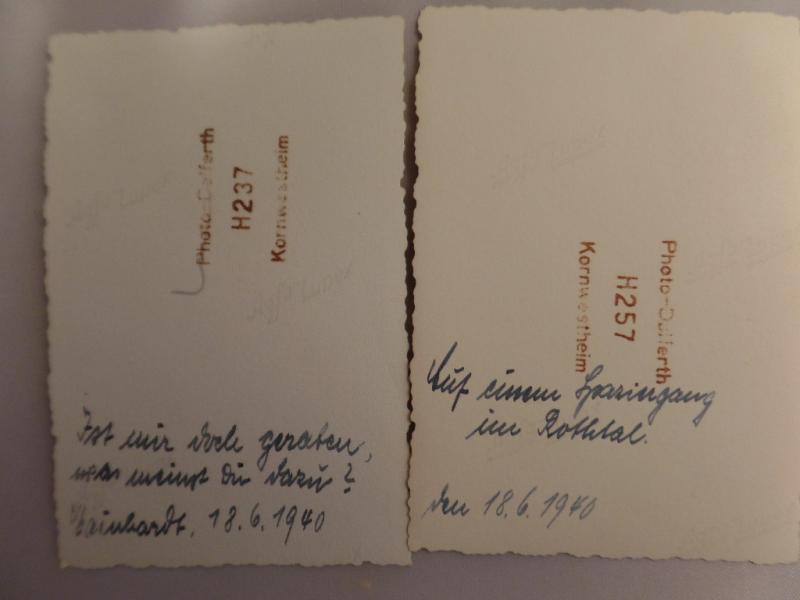 Photo-Defferth
H237
Kornwestheim
Ist mir doch geraten,
was meinst du dazu?
Mainhardt, 18.6.1940
Photo-Defferth
H257
Kornwestheim
Auf einem Spaziergang
im Rothtal.
den 18.6.1940